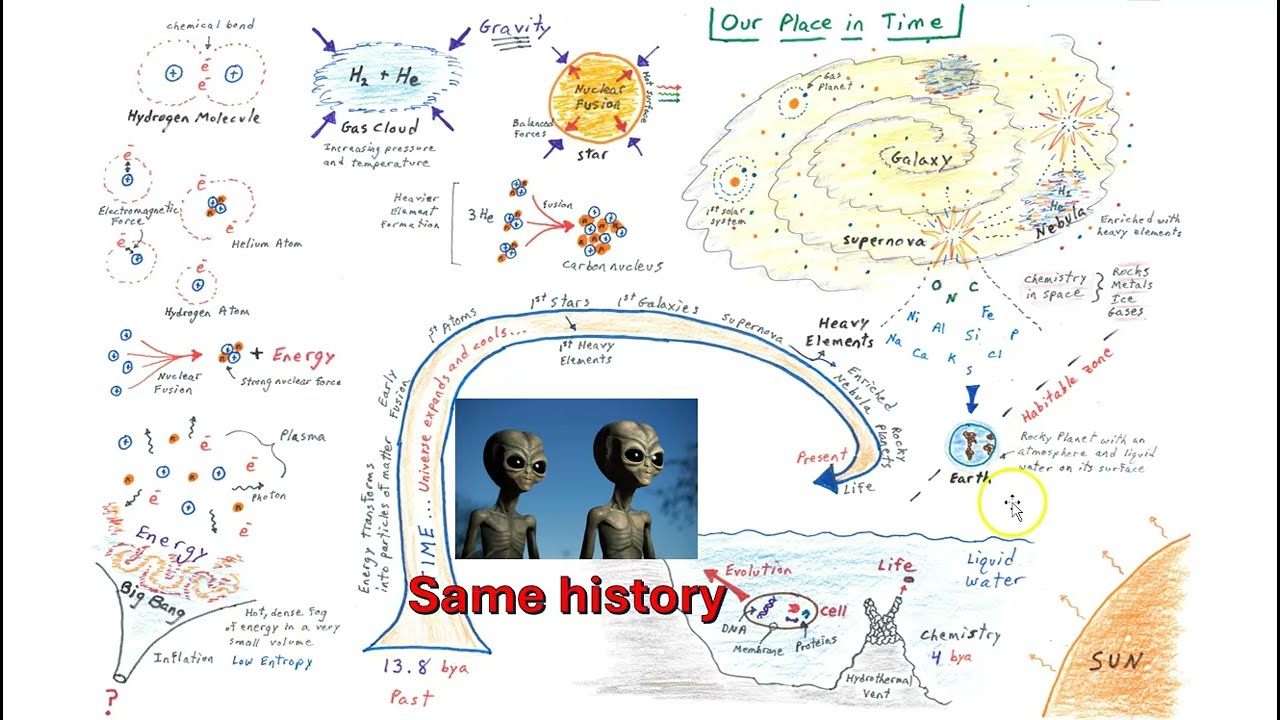 Our Place in Time
chemical bond
e⁻
e⁻
+
+
Hydrogen Molecule
Gravity
H₂ + He
Gas Cloud
Increasing pressure
and temperature
Nuclear
Fusion
Hot surface
Balanced
Forces
Star
e⁻
+
Electromagnetic
Force
e⁻
e⁻
e
Helium Atom
e⁻
+
Hydrogen Atom
Heavier
Element
Formation
3 He
fusion
Carbon nucleus
Gas
Planet
Galaxy
1st solar
system
Supernova
H₂
He
Nebula
Enriched with
heavy elements
chemistry
in space
Rocks
Metals
Ice
Gases
O
N
C
Ni
Al
Fe
Si
P
Na
Ca
K
Cl
S
Heavy
Elements
Habitable zone
Nuclear
Fusion
+ Energy
Strong nuclear force
Plasma
e⁻
e⁻
e⁻
e⁻
Photon
Energy
Big Bang
Hot, dense fog
of energy in a very
small volume
Inflation
Low Entropy
?
TIME ... Universe expands and cools...
Energy transforms
into particles of matter
Early
Fusion
1st Atoms
1st Stars
1st Galaxies
1st Heavy
Elements
Supernova
Enriched
Nebula
Rocky
Planets
Present
Life
13.8 bya
Past
Same history
Earth
Rocky Planet with an
atmosphere and liquid
water on its surface
Liquid
water
Evolution
Life
Cell
DNA
Membrane
Proteins
Hydrothermal
Vent
Chemistry
4 bya
SUN